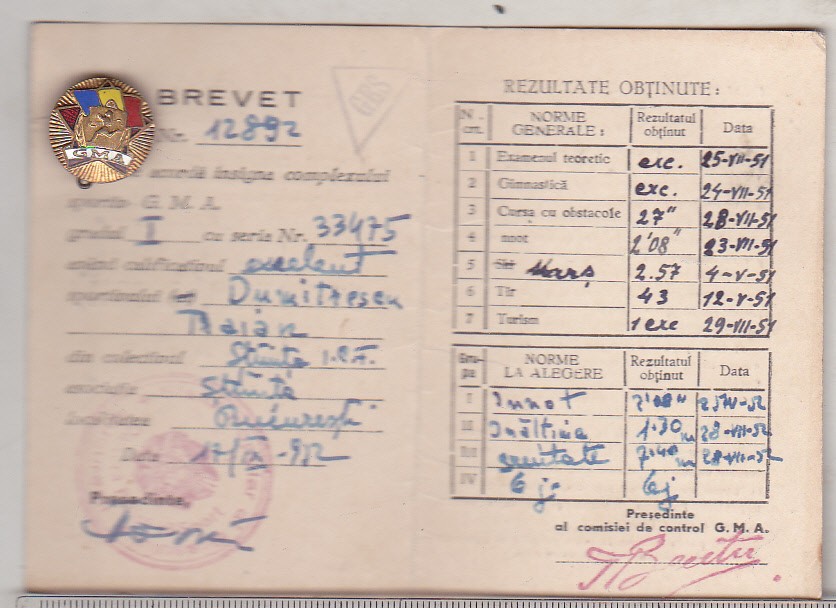 GMA
BREVET
Nr. 12892
acordă insigna complexului
sportiv G. M. A.
gradul I cu seria Nr. 33475
având calificativul excelent
sportivului Dumitrescu
Traian
din colectivul Știința
asociația Știința
localitatea București
Data 17/IX-952
Președinte,
REZULTATE OBȚINUTE:
N. crt. NORME GENERALE: Rezultatul obținut Data
1 Examenul teoretic exc. 25-VII-51
2 Gimnastică exc. 24-VII-51
3 Cursa cu obstacole 27" 28-VII-51
4 nnot 2'08" 23-VII-51
5 Ski Marș 2.57 4-V-51
6 Tir 43 12-V-51
7 Turism 1 exc 29-VII-51
Grupa NORME LA ALEGERE Rezultatul obținut Data
I Innot 2'08"
II Înălțime 1.30 m 28-VII-52
III greutate 7.40 m 28-VII-52
IV 6 j 6j
Președinte
al comisiei de control G. M. A.